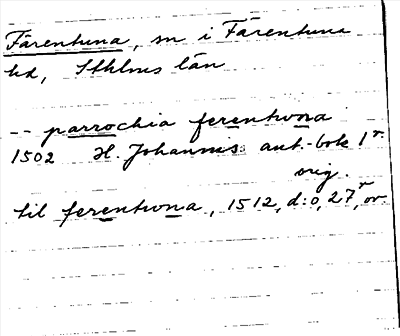 Färentuna, sn i Färentuna
hd, Sthlms län
-- parrochia ferentwna
1502 H. Johannis ant.-bok 1r
orig.
til ferentwna, 1512, d:o, 27r, or